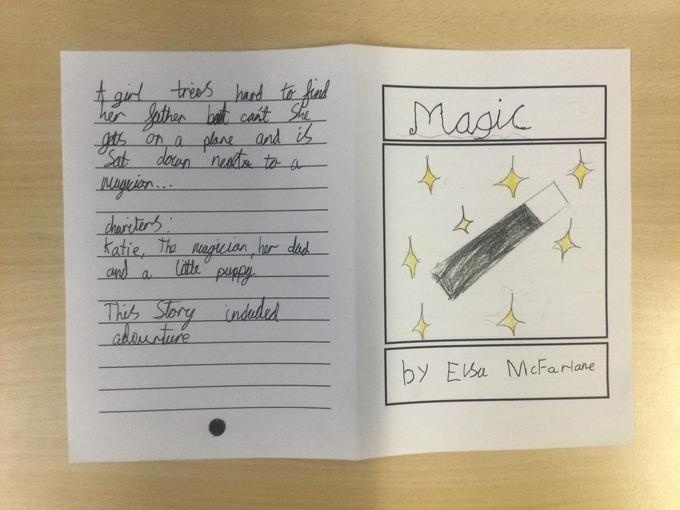 A girl treis hard to find
her father but can't She
gets on a plane and is
Sat down next to a
Mugician...
charicters:
Katie, The magician, her dad
and a little puppy.
This Story included
adounture
Magic
by Elsa McFarlane